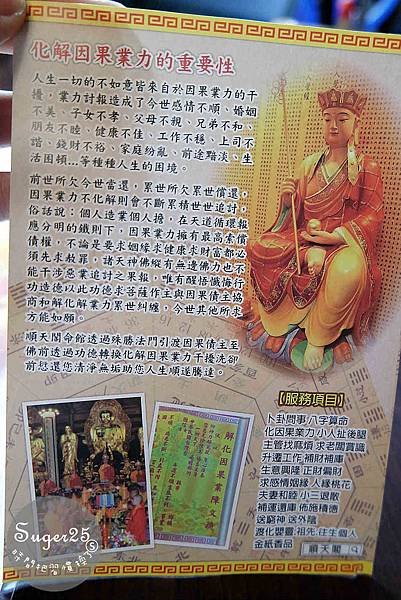 化解因果業力的重要性
人生一切的不如意皆來自於因果業力的干
擾，業力討報造成了今世感情不順、婚姻
不美、子女不孝、父母不親、兄弟不和、
朋友不睦、健康不佳、工作不穩、上司不
諧、錢財不裕、家庭紛亂、前途黯淡、生
活困頓...等種種人生的困境。
前世所欠今世當還，累世所欠累世償還，
因果業力不化解則會不斷累積世世追討，
俗話說：個人造業個人擔，在天道循環報
應分明的鐵則下，因果業力擁有最高索償
債權，不論是要求姻緣求健康求財富都必
須先求赦罪，諸天神佛縱有無邊佛力也不
能干涉冤業追討之果報，唯有醒悟懺悔行
功造德以此功德求菩薩作主與因果債主協
商和解化解業力累世糾纏，今世其他所求
方能如願。
順天閣命館透過殊勝法門引渡因果債主至
佛前透過功德轉換化解因果業力干擾洗卻
前愆還您清淨無垢助您人生順遂騰達。
【服務項目】
卜卦問事 八字算命
化因果業力 小人扯後腿
主管找麻煩 求老闆賞識
升遷工作 補財補庫
生意興隆 正財偏財
求感情姻緣 人緣桃花
夫妻和睦 小三退散
補運還庫 佈施積德
送窮神 送外陰
渡化嬰靈.祖先.往生個人
金紙香品
順天閣
解化因果業障文疏
Suger25